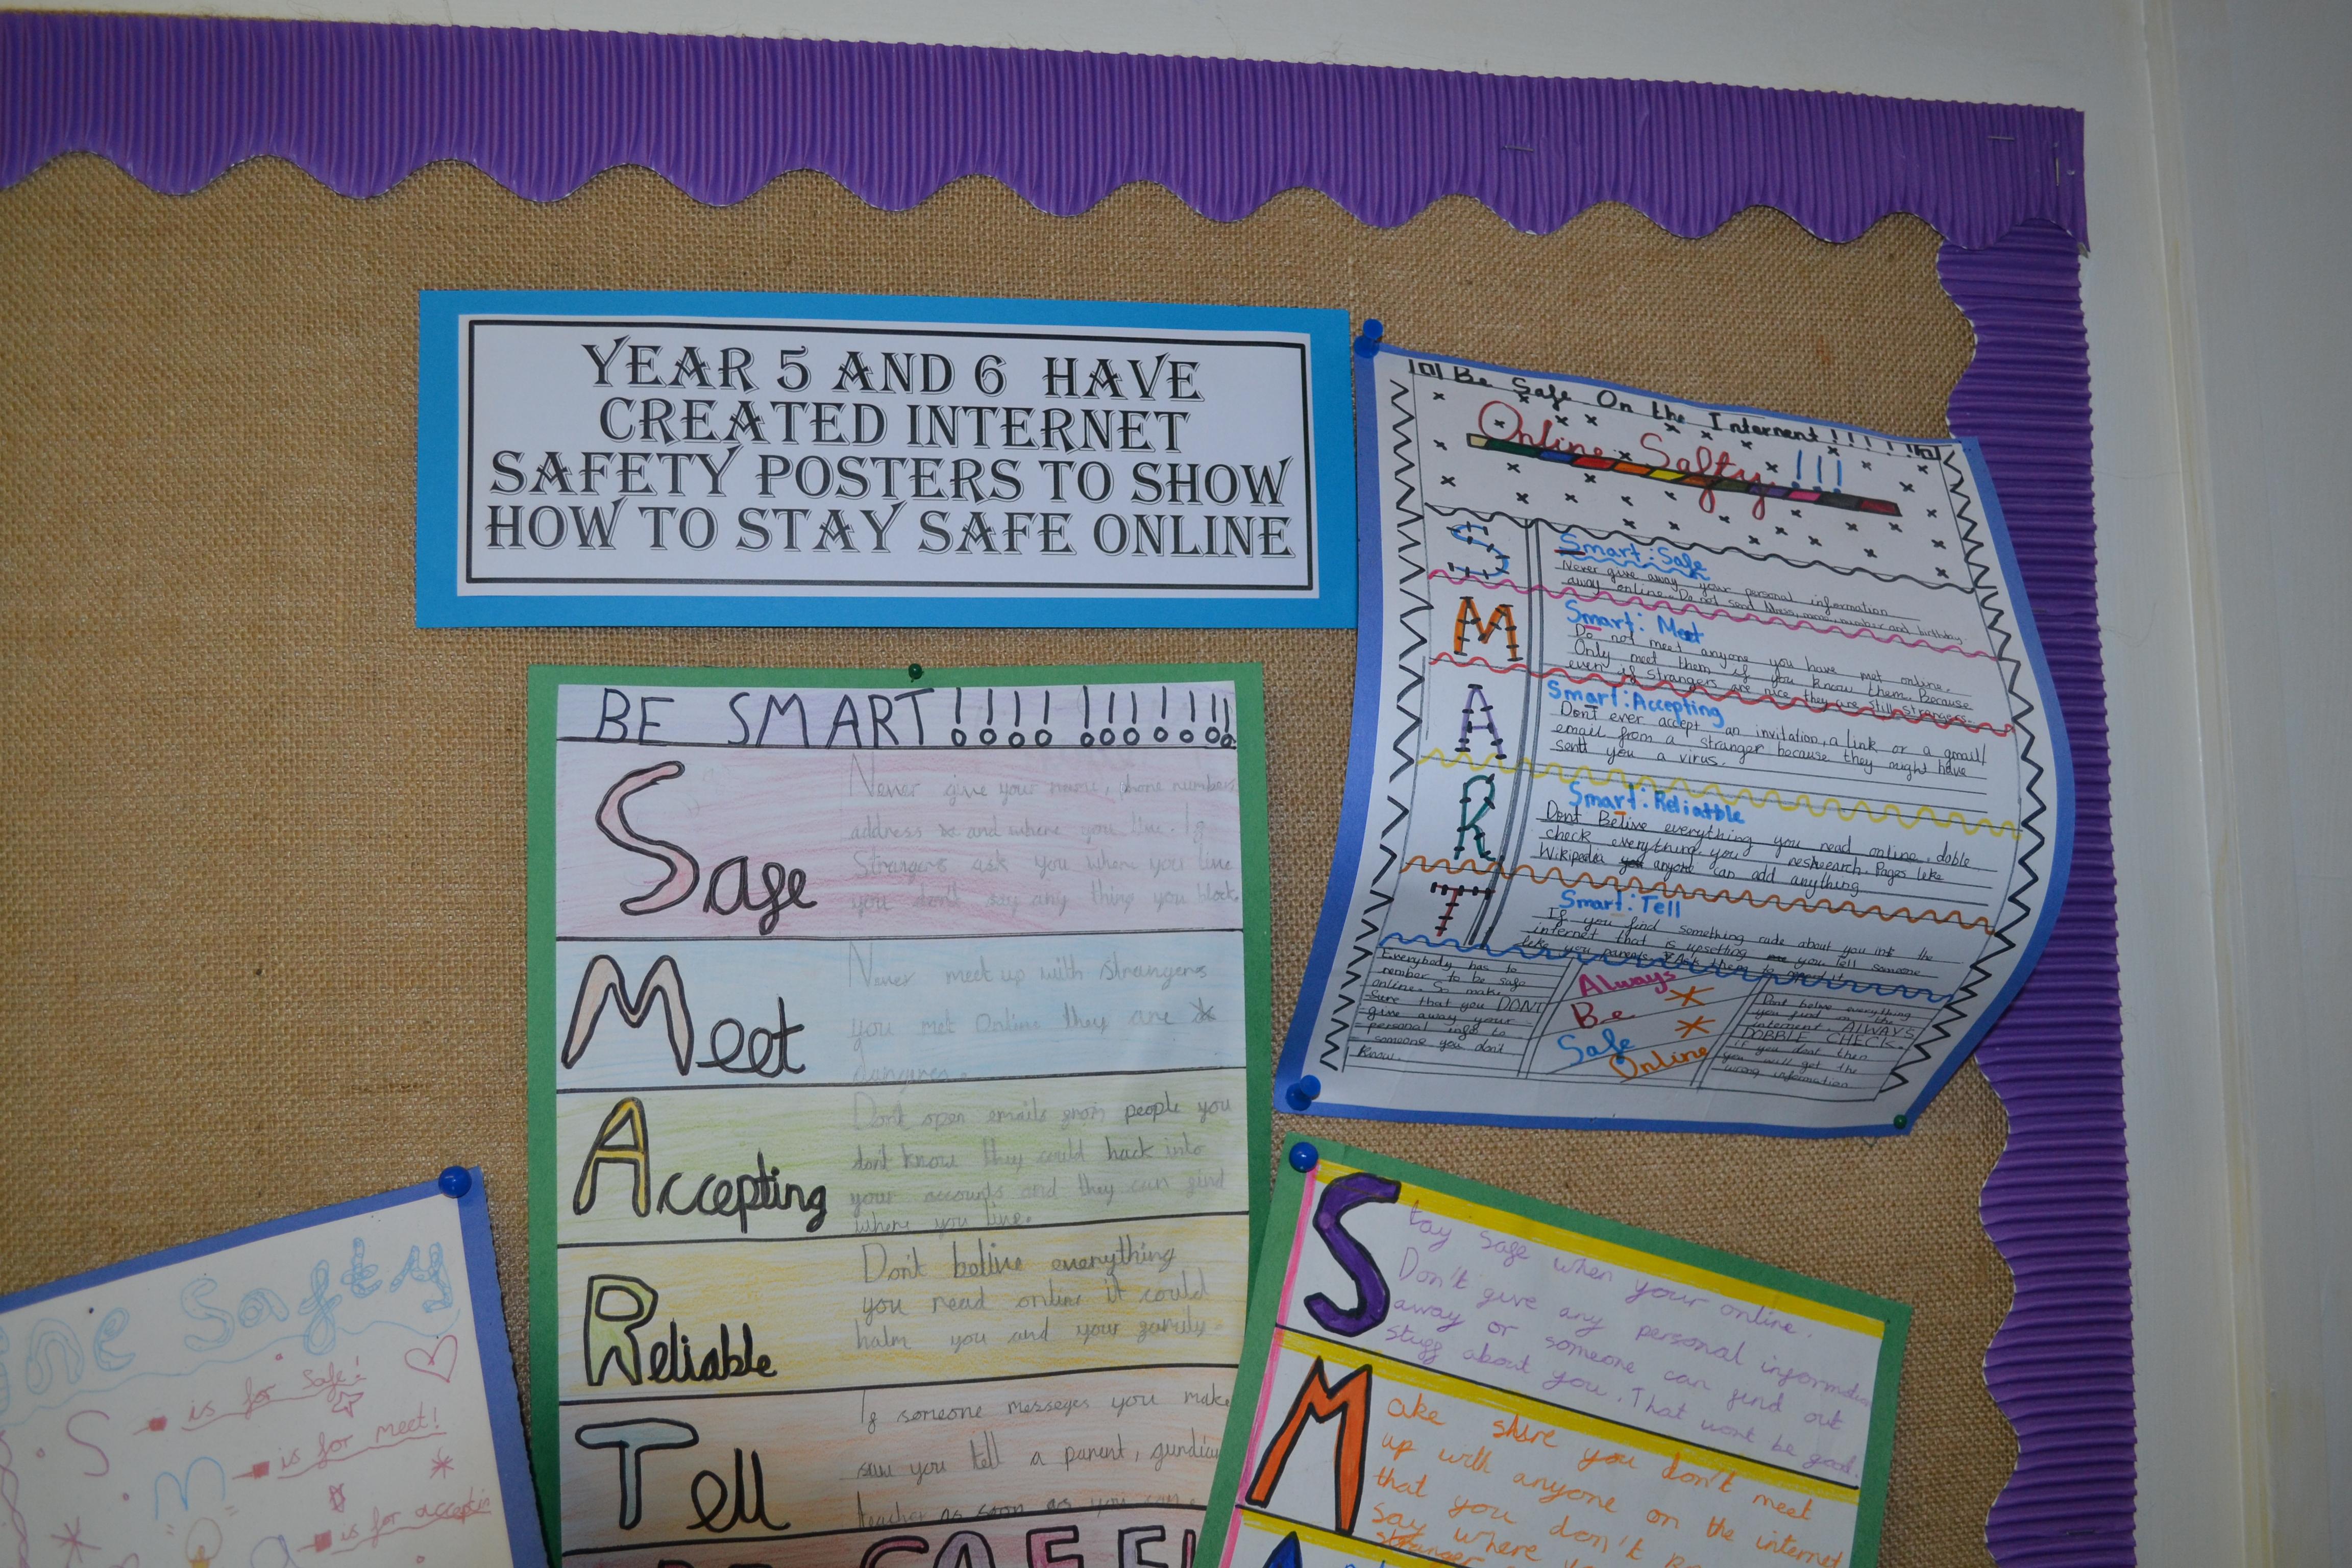 YEAR 5 AND 6 HAVE
CREATED INTERNET
SAFETY POSTERS TO SHOW
HOW TO STAY SAFE ONLINE
Be Safe On the Internent!!!!!!
Online Safty!!!
S
Smart: Safe
Never give away your personal information
away online. Do not send number and birthday
M
Smart: Meet
Do not meet anyone you have met online.
Only meet them if you know them. Because
even if strangers are nice they are still strangers.
A
Smart: Accepting
Don't ever accept an invitation, a link or a gmail/
email from a stranger because they might have
sent you a virus.
R
Smart: Reliatble
Dont Belive everything you read online. doble
check everything you reshearch. Pages like
Wikipedia anyone can add anything
T
Smart: Tell
If you find something rude about you the
internet that is upsetting you tell someone
like you parents Ask them to
Everybody has to
rember to be safe
online. So make
sure that you DONT
give away your
personal info to
someone you don't
know.
Always
Be
Safe
Online
Dont belive everything
you find on the
internent. ALWAYS
DOBBLE CHECK.
if you dont then
you will get the
wrong information
BE SMART!!!! !!!!!!!
Safe
Never give your name, phone numbers
address and where you live. If
Strangers ask you where you live
you don't say any thing you block.
Meet
Never meet up with strangers
you met Online they are
Accepting
Don't open emails from people you
don't know they could hack into
your accounts and they can find
where you live.
Reliable
Don't belive everything
you read online it could
halm you and your family.
Tell
If someone messeges you make
you tell a parent,
teacher as soon as you can.
SAFE!
Stay safe when your online.
Don't give any personal information
away or someone can find out
stuff about you. That wont be good.
Make shire you don't meet
up with anyone on the internet
that you don't
say where
stranger
ne Safty
S is for Safe!
M is for meet!
a is for acceptin